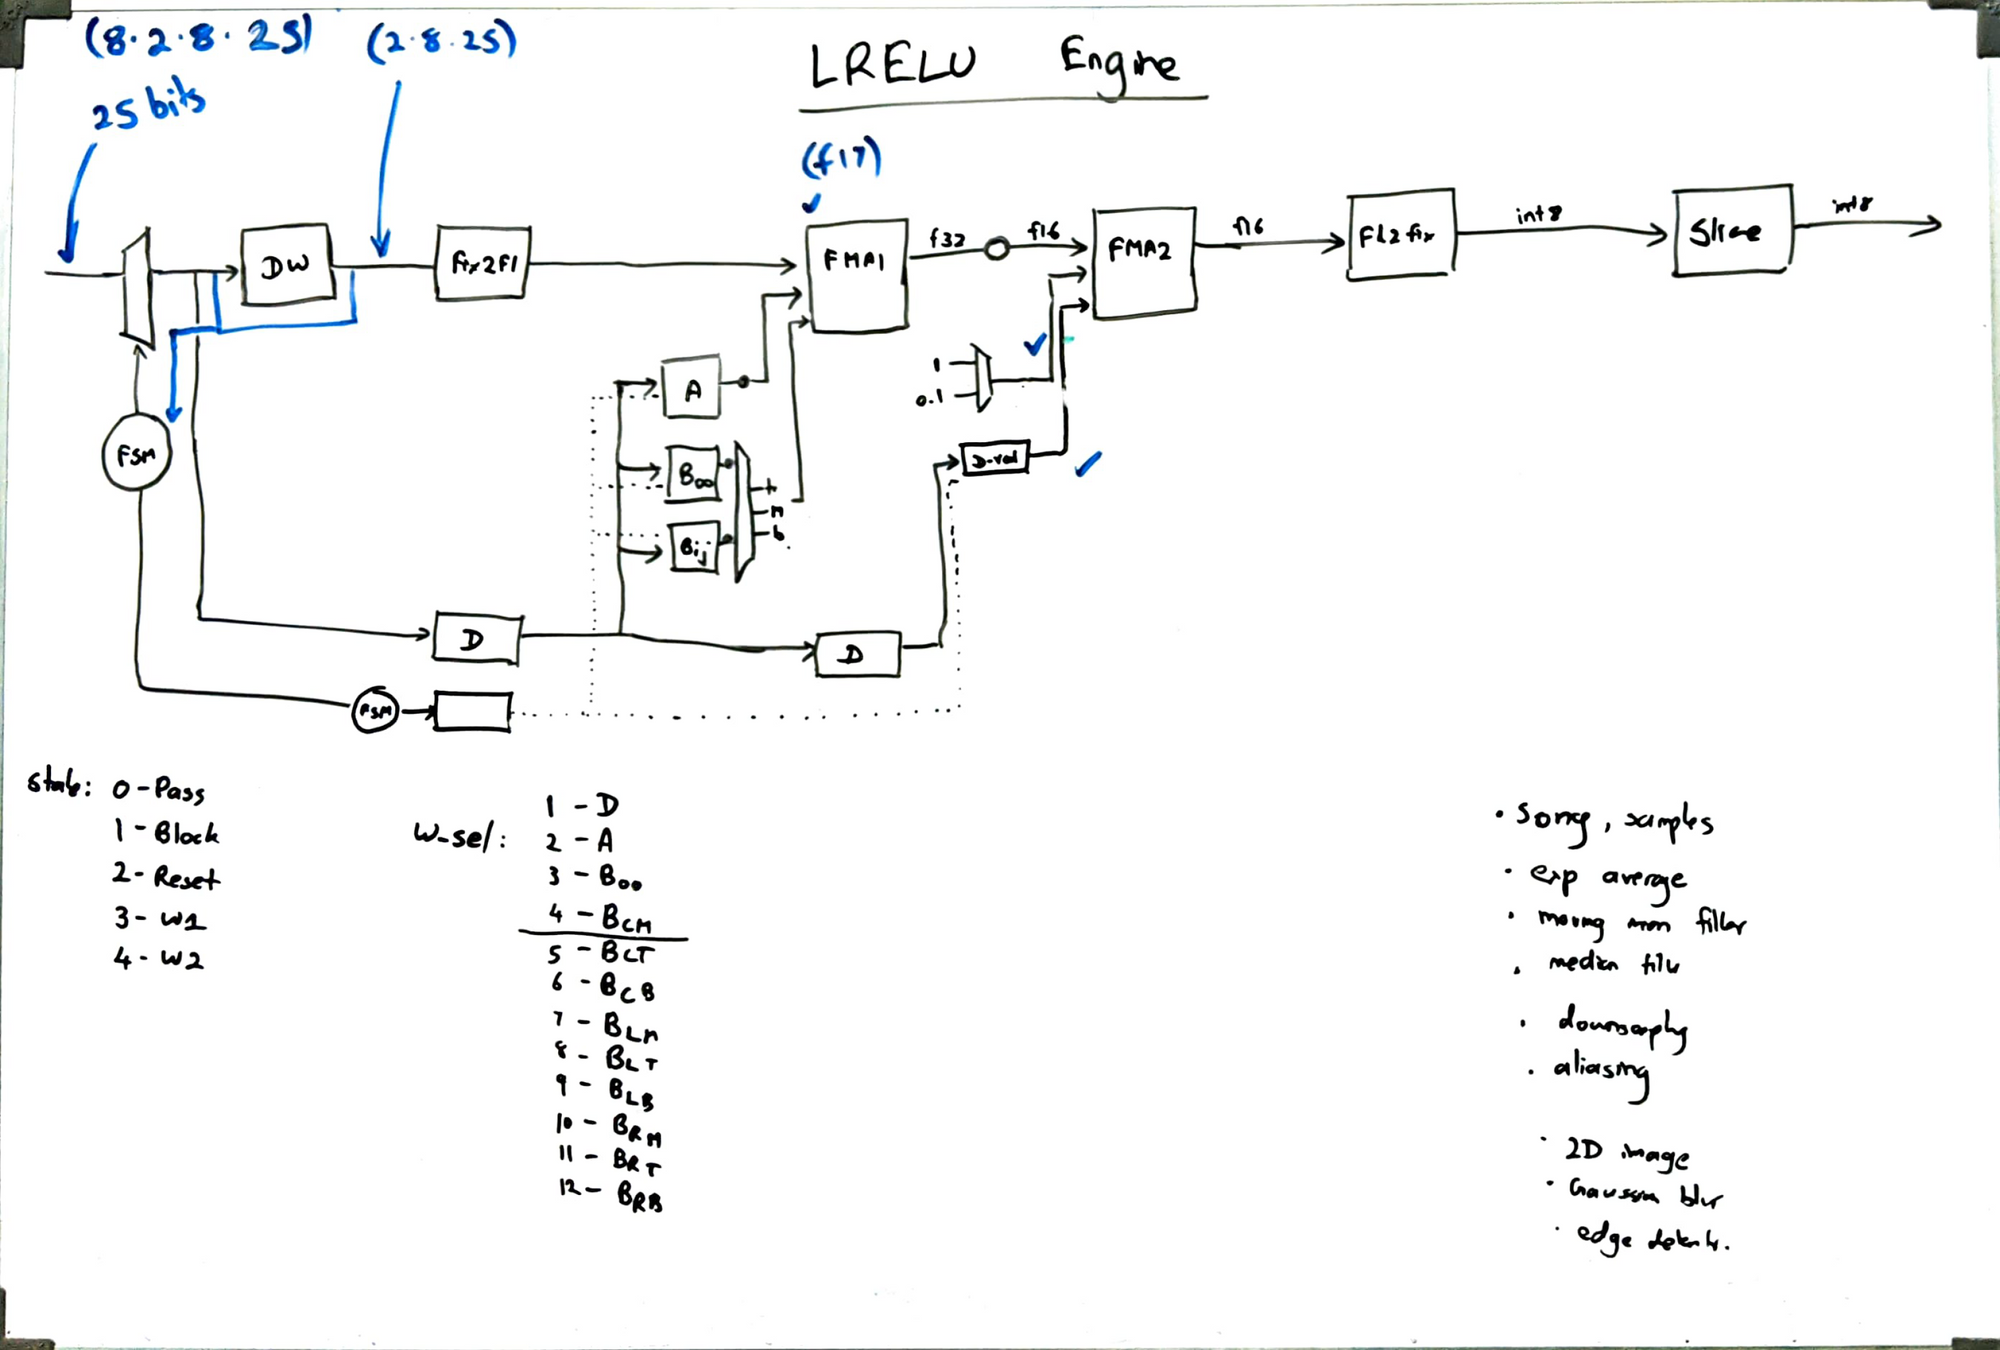 (8.2.8.25)
(2.8.25)
25 bits
LRELU Engine
(f17)
DW
Fix2Fl
FMA1
f32
f16
FMA2
f16
FL2fix
int8
Slice
int8
FSM
A
B00
Bij
t
m
b
1
0.1
D-val
D
D
FSM
state:
0 - Pass
1 - Block
2 - Reset
3 - W1
4 - W2
W-sel:
1 - D
2 - A
3 - B00
4 - BCM
5 - BCT
6 - BCB
7 - BLM
8 - BLT
9 - BLB
10 - BRM
11 - BRT
12 - BRB
• Song, samples
• exp average
• moving filter
• median filter
• downsamplng
• aliasing
• 2D image
• Gaussian blur
• edge